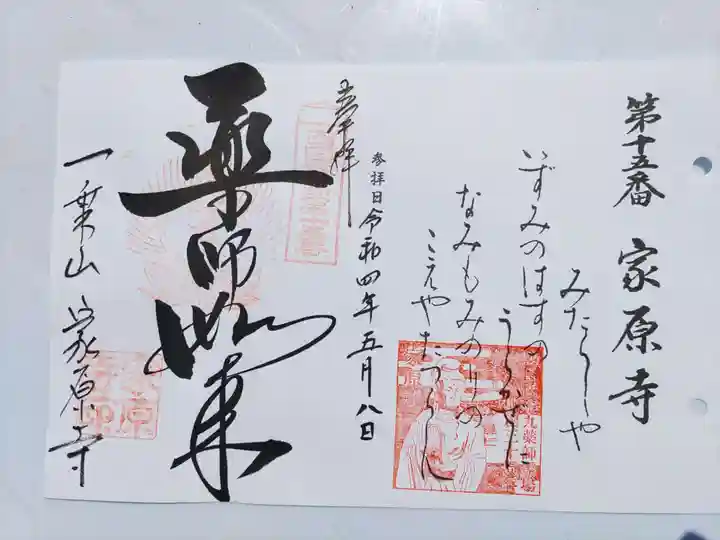 第十五番 家原寺
みたらしや
いずみのはすの
うらかぜに
なみもみのりの
こえやたつらん
参拝日令和四年五月八日
奉拝
薬師如来
一乗山 家原寺